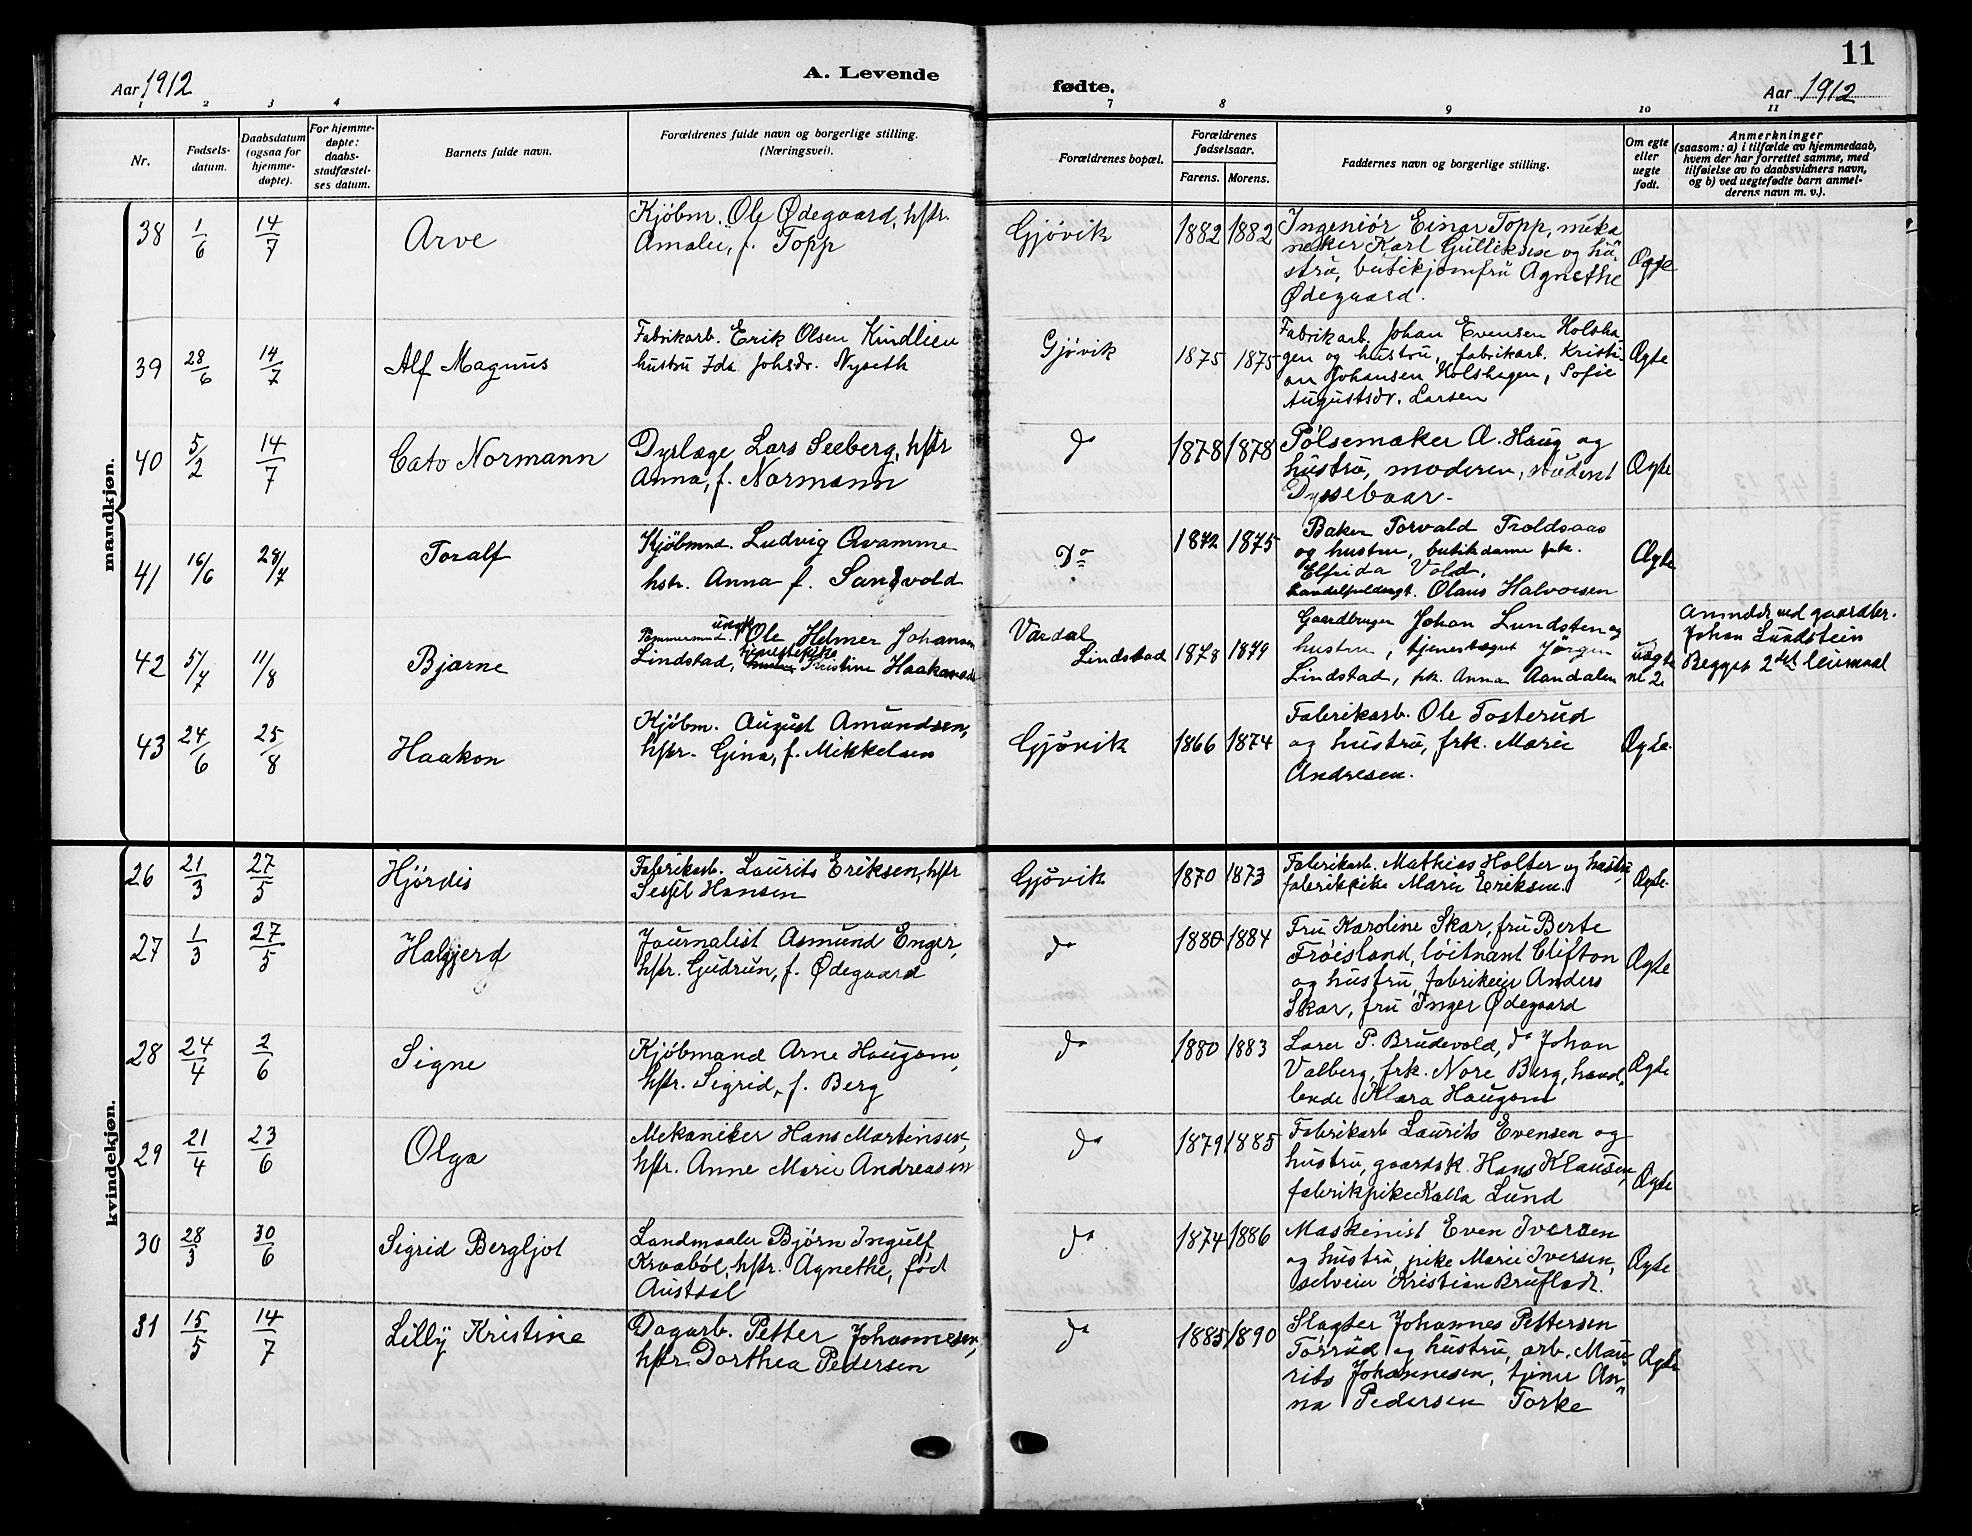 11
Aar 1912
A. Levende
fødte.
Aar 1912
1 2 3 4
7 8 9 10 11
Nr.
Fødsels-
datum.
Daabsdatum
(ogsaa for
hjemme-
døpte).
For hjemme-
døpte:
daabs-
stadfæstel-
ses datum.
Barnets fulde navn.
Forældrenes fulde navn og borgerlige stilling.
(Næringsvei).
Forældrenes bopæl.
Forældrenes
fødselsaar.
Farens. Morens.
Faddernes navn og borgerlige stilling.
Om egte
eller
uegte
født.
Anmerkninger
(saasom: a) i tilfælde av hjemmedaab,
hvem der har forrettet samme, med
tilføielse av to daabsvidners navn,
og b) ved uegtefødte barn anmel-
derens navn m. v.).
mandkjøn.
38 1/6 14/7 Arve
Kjøbm. Ole Ødegaard, hstr.
Amalie, f. Topp
Gjøvik 1882 1882
Ingeniør Einar Topp, meka
niker Karl Gulliksen og hu
stru, butikjomfru Agnethe
Ødegaard.
Ægte
39 28/6 14/7 Alf Magnus
Fabrikarb. Erik Olsen Kindlien
hustru Ida Johsdr. Nyseth
Gjøvik 1875 1875
Fabrikarb. Johan Evensen Holsha-
gen og hustru, fabrikarb. Kristi-
an Johansen Holshagen, Sofie
Augustsdr. Larsen
Ægte
40 5/2 14/7 Cato Normann
Dyrlæge Lars Seeberg, hstr
Anna, f. Normann
do 1878 1878
Pølsemaker A. Haug og
hustru, moderen, student
Dyssebaar.
Ægte
41 16/6 28/7 Toralf
Kjøbmnd. Ludvig Avamme
hstr. Anna f. Sandvold
Do 1872 1875
Baker Torvald Troldsaas
og hustru, butikdame frk.
Elfrida Vold,
handelsfuldmgt. Olaus Halvorsen
Ægte
42 5/7 11/8 Bjarne
Tømmermnd. ungk. Ole Helmer Johansen
Lindstad, tjenestepike Kristine Haakensdr
Vardal
Lindstad 1878 1879
Gaardbruger Johan Lundsten og
hustru, tjenestegut Jørgen
Lindstad, frk. Anna Aandalen
uægte
nr 2
Anmeldt ved gaardbr.
Johan Lundstein
Begges 2det leiermaal
43 24/6 25/8 Haakon
Kjøbm. August Amundsen,
hstr. Gina, f. Mikkelsen
Gjøvik 1866 1874
Fabrikarb. Ole Tosterud
og hustru, frk. Marie
Andresen.
Ægte.
kvindekjøn.
26 21/3 27/5 Hjørdis
Fabrikarb. Laurits Eriksen, hstr
Sessel Hansen
Gjøvik 1870 1873
Fabrikarb. Mathias Holter og hustru,
fabrikpike Marie Eriksen.
Ægte.
27 1/3 27/5 Halgjerd
Journalist Asmund Enger,
hstr. Gudrun, f. Ødegaard
do 1880 1884
Fru Karoline Skar, fru Berte
Frøisland, løitnant Clifton
og hustru, fabrikeier Anders
Skar, fru Inger Ødegaard
Ægte
28 24/4 2/6 Signe
Kjøbmand Arne Haugom,
hstr. Sigrid, f. Berg
do 1880 1883
Lærer P. Brudevold, do Johan
Valberg, frk. Nore Berg, hand-
lende Klara Haugom
Ægte
29 21/4 23/6 Olga
Mekaniker Hans Martinsen,
hstr. Anne Marie Andreasen
do 1879 1885
Fabrikarb Laurits Evensen og
hustru, gaardsk. Hans Klausen,
fabrikpike Kalla Lund
Ægte
30 28/3 30/6 Sigrid Bergljot
Landmaaler Bjørn Ingulf
Kraabøl, hstr. Agnethe, fød
Austdal
do 1874 1886
Maskinist Even Iversen
og hustru, pike Marie Iversen,
selveier Kristian Bruflodt.
Ægte
31 15/5 14/7 Lilly Kristine
Dagarb. Petter Johannesen,
hstr. Dorthea Pedersen
do 1885 1890
Slagter Johannes Pettersen
Torrud og hustru, arb. Mau-
rits Johannesen, tjener An-
na Pedersen Torke
Ægte